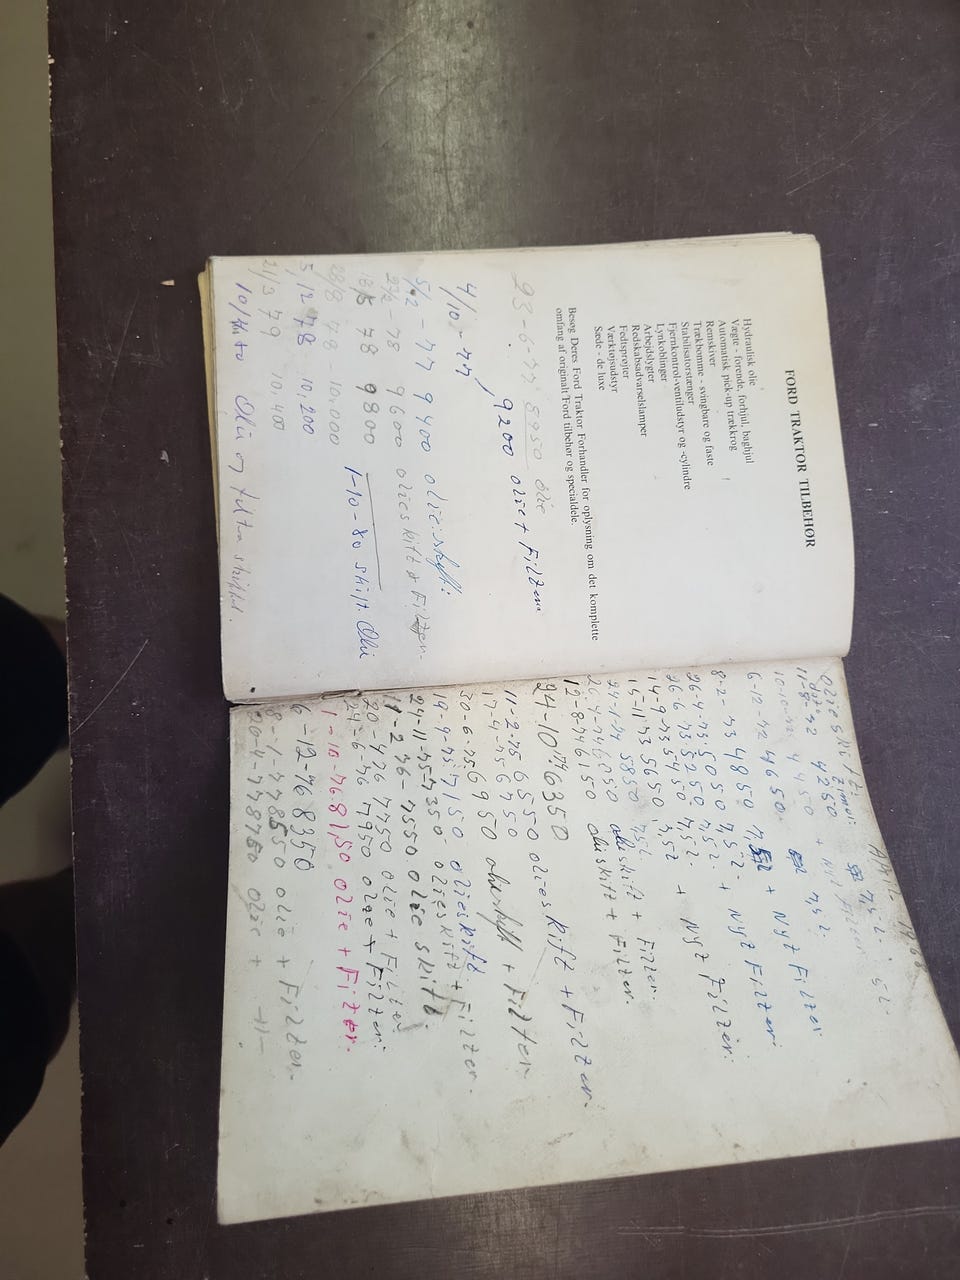 FORD TRAKTOR TILBEHØR
Hydraulisk olie
Vægte - forende, forhjul, baghjul
Automatisk pick-up trækkrog
Remskiver
Trækbomme - svingbare og faste
Stabilisatorstænger
Fjernkontrol-ventiludstyr og -cylindre
Lynkoblinger
Arbejdslygter
Redskabsadvarselslamper
Fedtsprøjter
Værktøjsudstyr
Sæde - de luxe
Besøg Deres Ford Traktor Forhandler for oplysning om det komplette
omfang af originalt Ford tilbehør og specialdele.
23-6-77 8950 olie
4/10-77, 9200 olie + Filter
5/12-77 9400 olie skift.
9600 olieskift + Filter.
78 9800
1-10-80 skift. Olie
28/8 78 - 10.000
5/12 78 10,200
21/3 79 10,400
Olie og filtre skiftet.
Olieskift:
Timer:
4250 + Nyt Filter
10-10-72 4450 7,5 l.
6-12-72 4650. + Nyt Filter
8-2-73 4850 7,5 l + Nyt Filter.
26-4-73. 5050 7,5 l.
5250 7,5 l. + Nyt Filter.
14-9-73 5450 7,5 l
15-11-73 5650
24-1-74 5850 olieskift + Filter.
26-4-74 6050 olieskift + Filter.
12-8-74 6150
24-10-74 6350 olieskift + Filter.
11-2-75 6550
17-4-75 6750
30-6-75. 6950 olieskift + Filter.
19-9-75 7150 olieskift + Filter.
24-11-75 7350 - olieskift
11-2-76 - 7550 olie skift.
20-4-76 7750 olie + Filter
24-6-76 7950 olie + Filter.
1-10-76. 8150 olie + Filter.
6-12-76 8350
8-1-77 8550 olie + Filter.
20-4-77 8750 olie + -11-